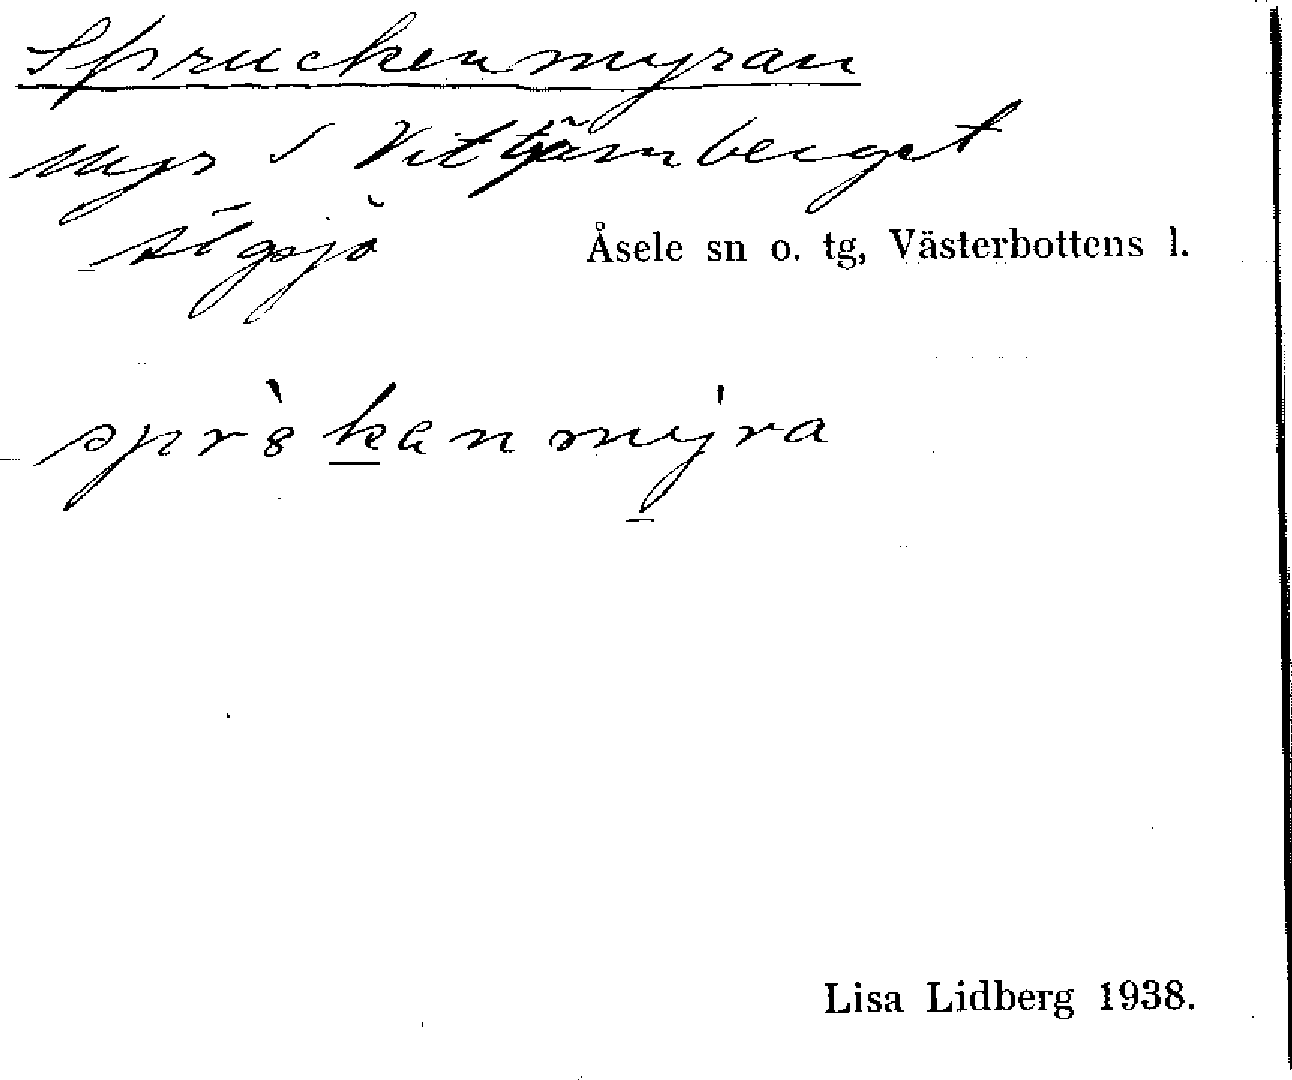 Spruckenmyran
myr S Vittjärnberget
Högsjö
Åsele sn o. tg, Västerbottens l.
Lisa Lidberg 1938.